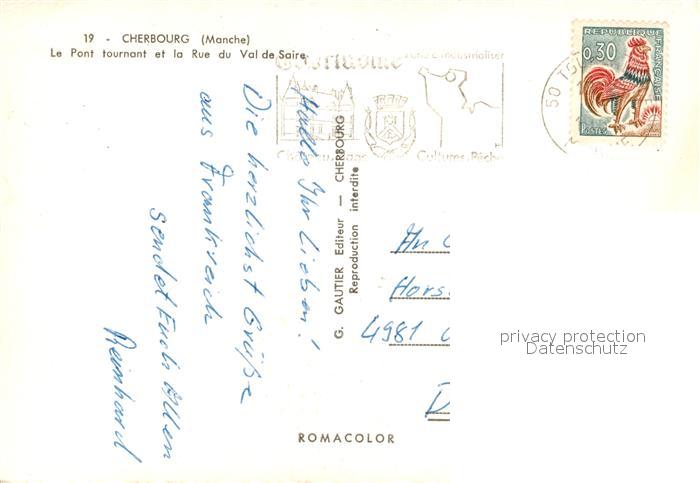 19 - CHERBOURG (Manche)
Le Pont tournant et la Rue du Val de Saire
REPUBLIQUE
FRANÇAISE
0,30
POSTES
50
Cultures-Pêche
G. GAUTIER Editeur — CHERBOURG
Reproduction interdite
Hallo Ihr Lieben!
Die herzlichst Grüße
aus Frankreich
sendet Euch Allen
Reinhard
An
Hors
4981
D
privacy protection
Datenschutz
ROMACOLOR